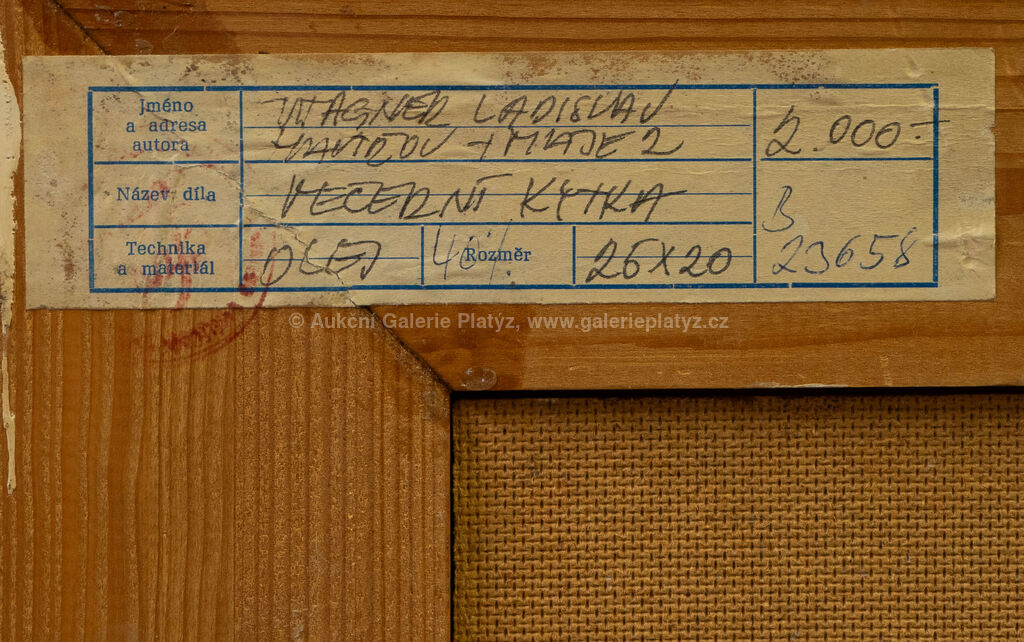 Jméno
a adresa
autora
WAGNER LADISLAV
2.000.-
Název díla
VEČERNÍ KYTKA
B
Technika
a materiál
OLEJ
40%
Rozměr
26X20
23658
© Aukční Galerie Platýz, www.galerieplatyz.cz